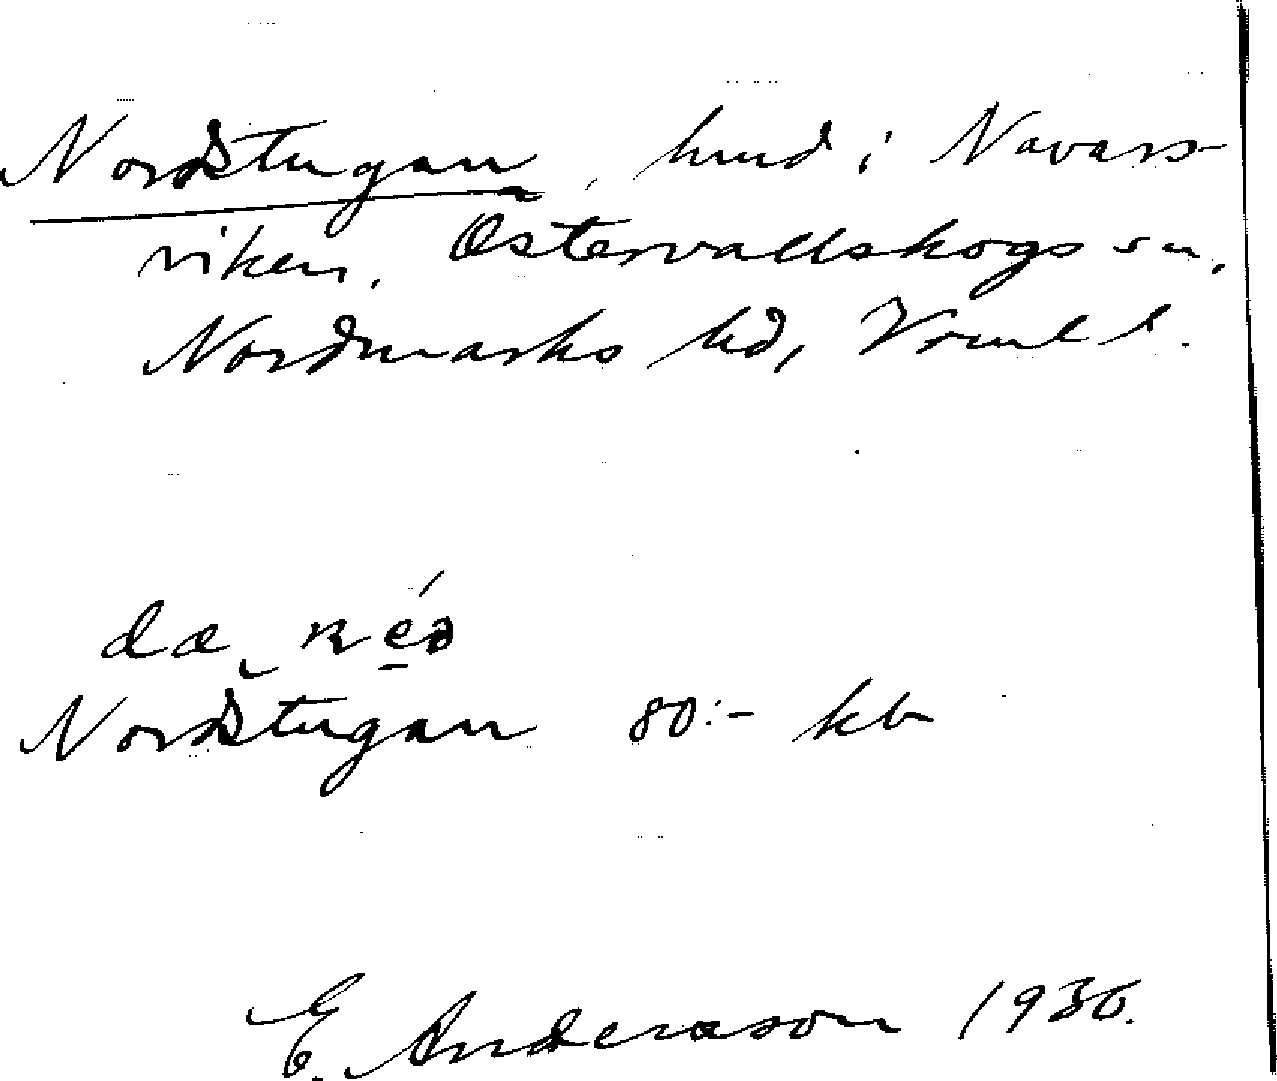 Nordstugan, hmd i Navars-
viken, Östervallskogs sn,
Nordmarks hd, Vrml l.
Nordstugan 80:- kb
E. Anderson 1930.